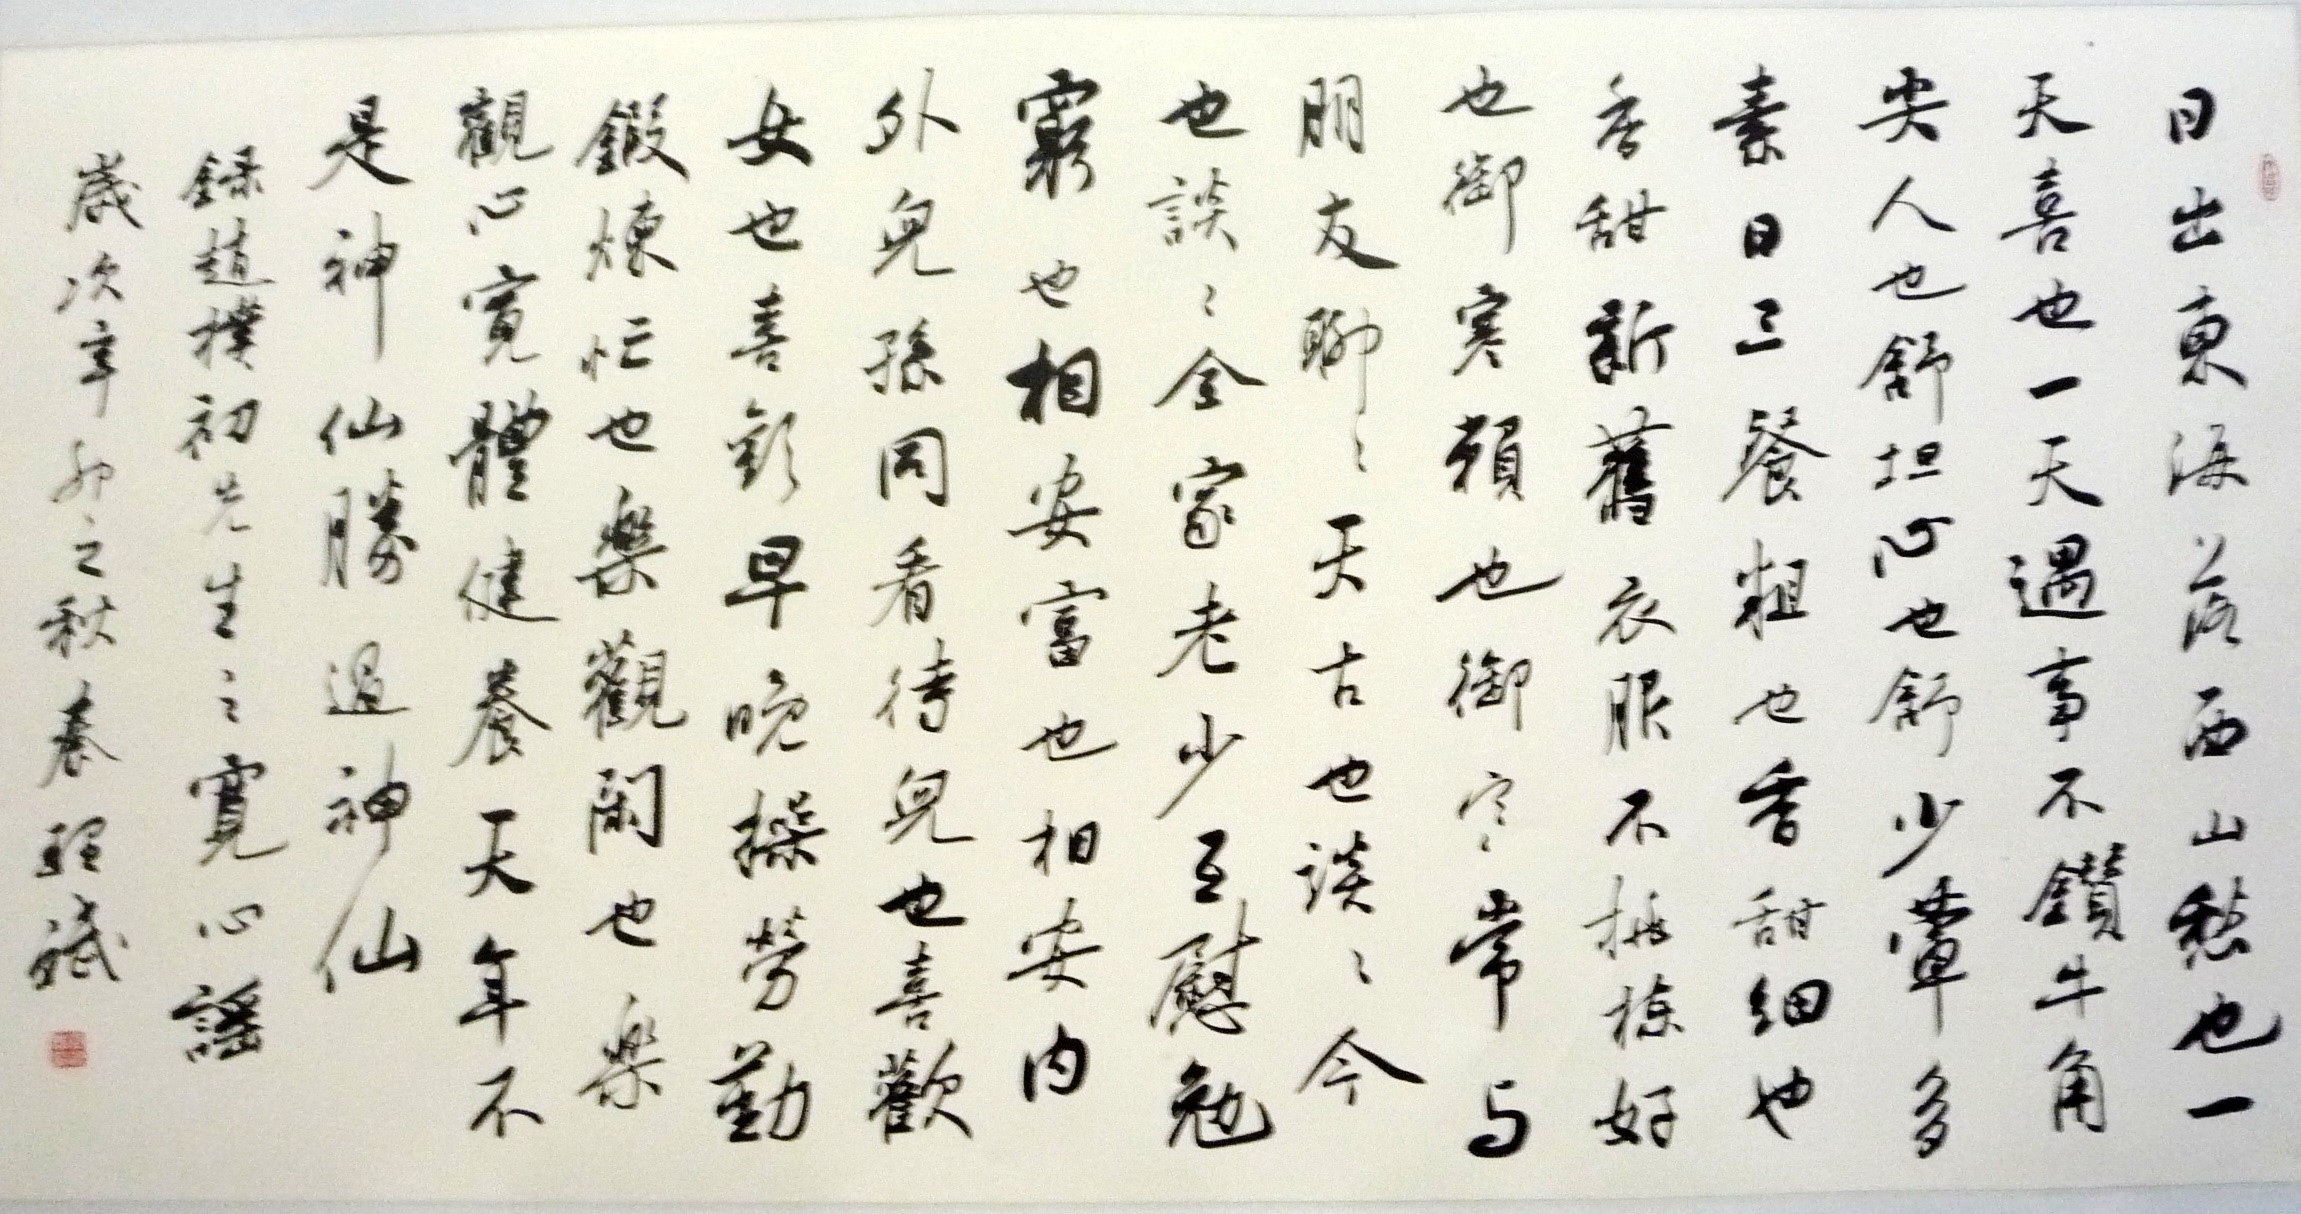 日出東海落西山愁也一
天喜也一天遇事不鑽牛角
尖人也舒坦心也舒少葷多
素日三餐粗也香甜細也
香甜新舊衣服不挑揀好
也御寒賴也御寒常与
朋友聊〻天古也談〻今
也談〻全家老少互慰勉
窮也相安富也相安內
外兒孫同看待兒也喜歡
女也喜歡早晚操勞勤
鍛煉忙也樂觀閑也樂
觀心寬體健養天年不
是神仙勝過神仙
録趙樸初先生之寬心謠
歲次辛卯之秋